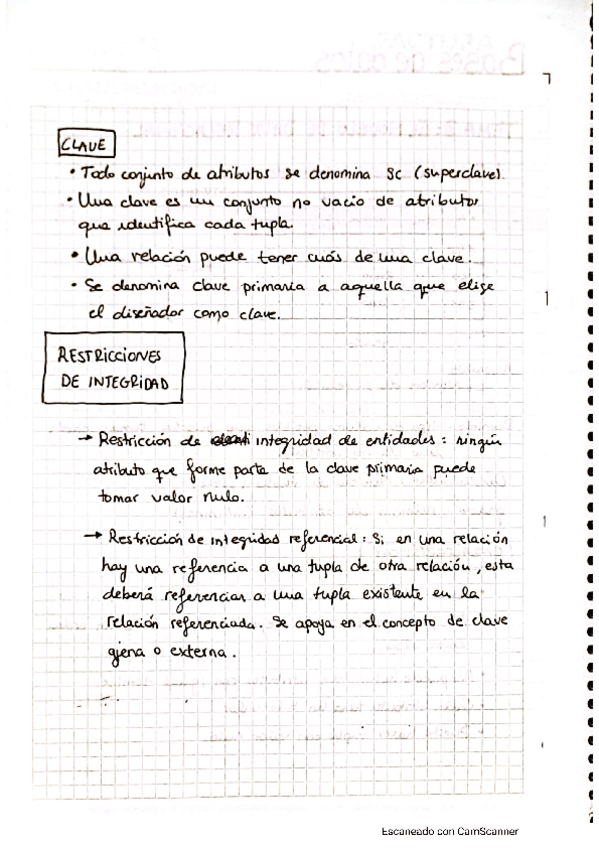 CLAVE
• Todo conjunto de atributos se denomina SC (superclave).
• Una clave es un conjunto no vacio de atributos
que identifica cada tupla.
• Una relación puede tener más de una clave.
• Se denomina clave primaria a aquella que elige
el diseñador como clave.
RESTRICCIONES
DE INTEGRIDAD
→ Restricción de integridad de entidades: ningún
atributo que forme parte de la clave primaria puede
tomar valor nulo.
→ Restricción de integridad referencial: Si en una relación
hay una referencia a una tupla de otra relación, esta
deberá referenciar a una tupla existente en la
relación referenciada. Se apoya en el concepto de clave
ajena o externa.
Escaneado con CamScanner